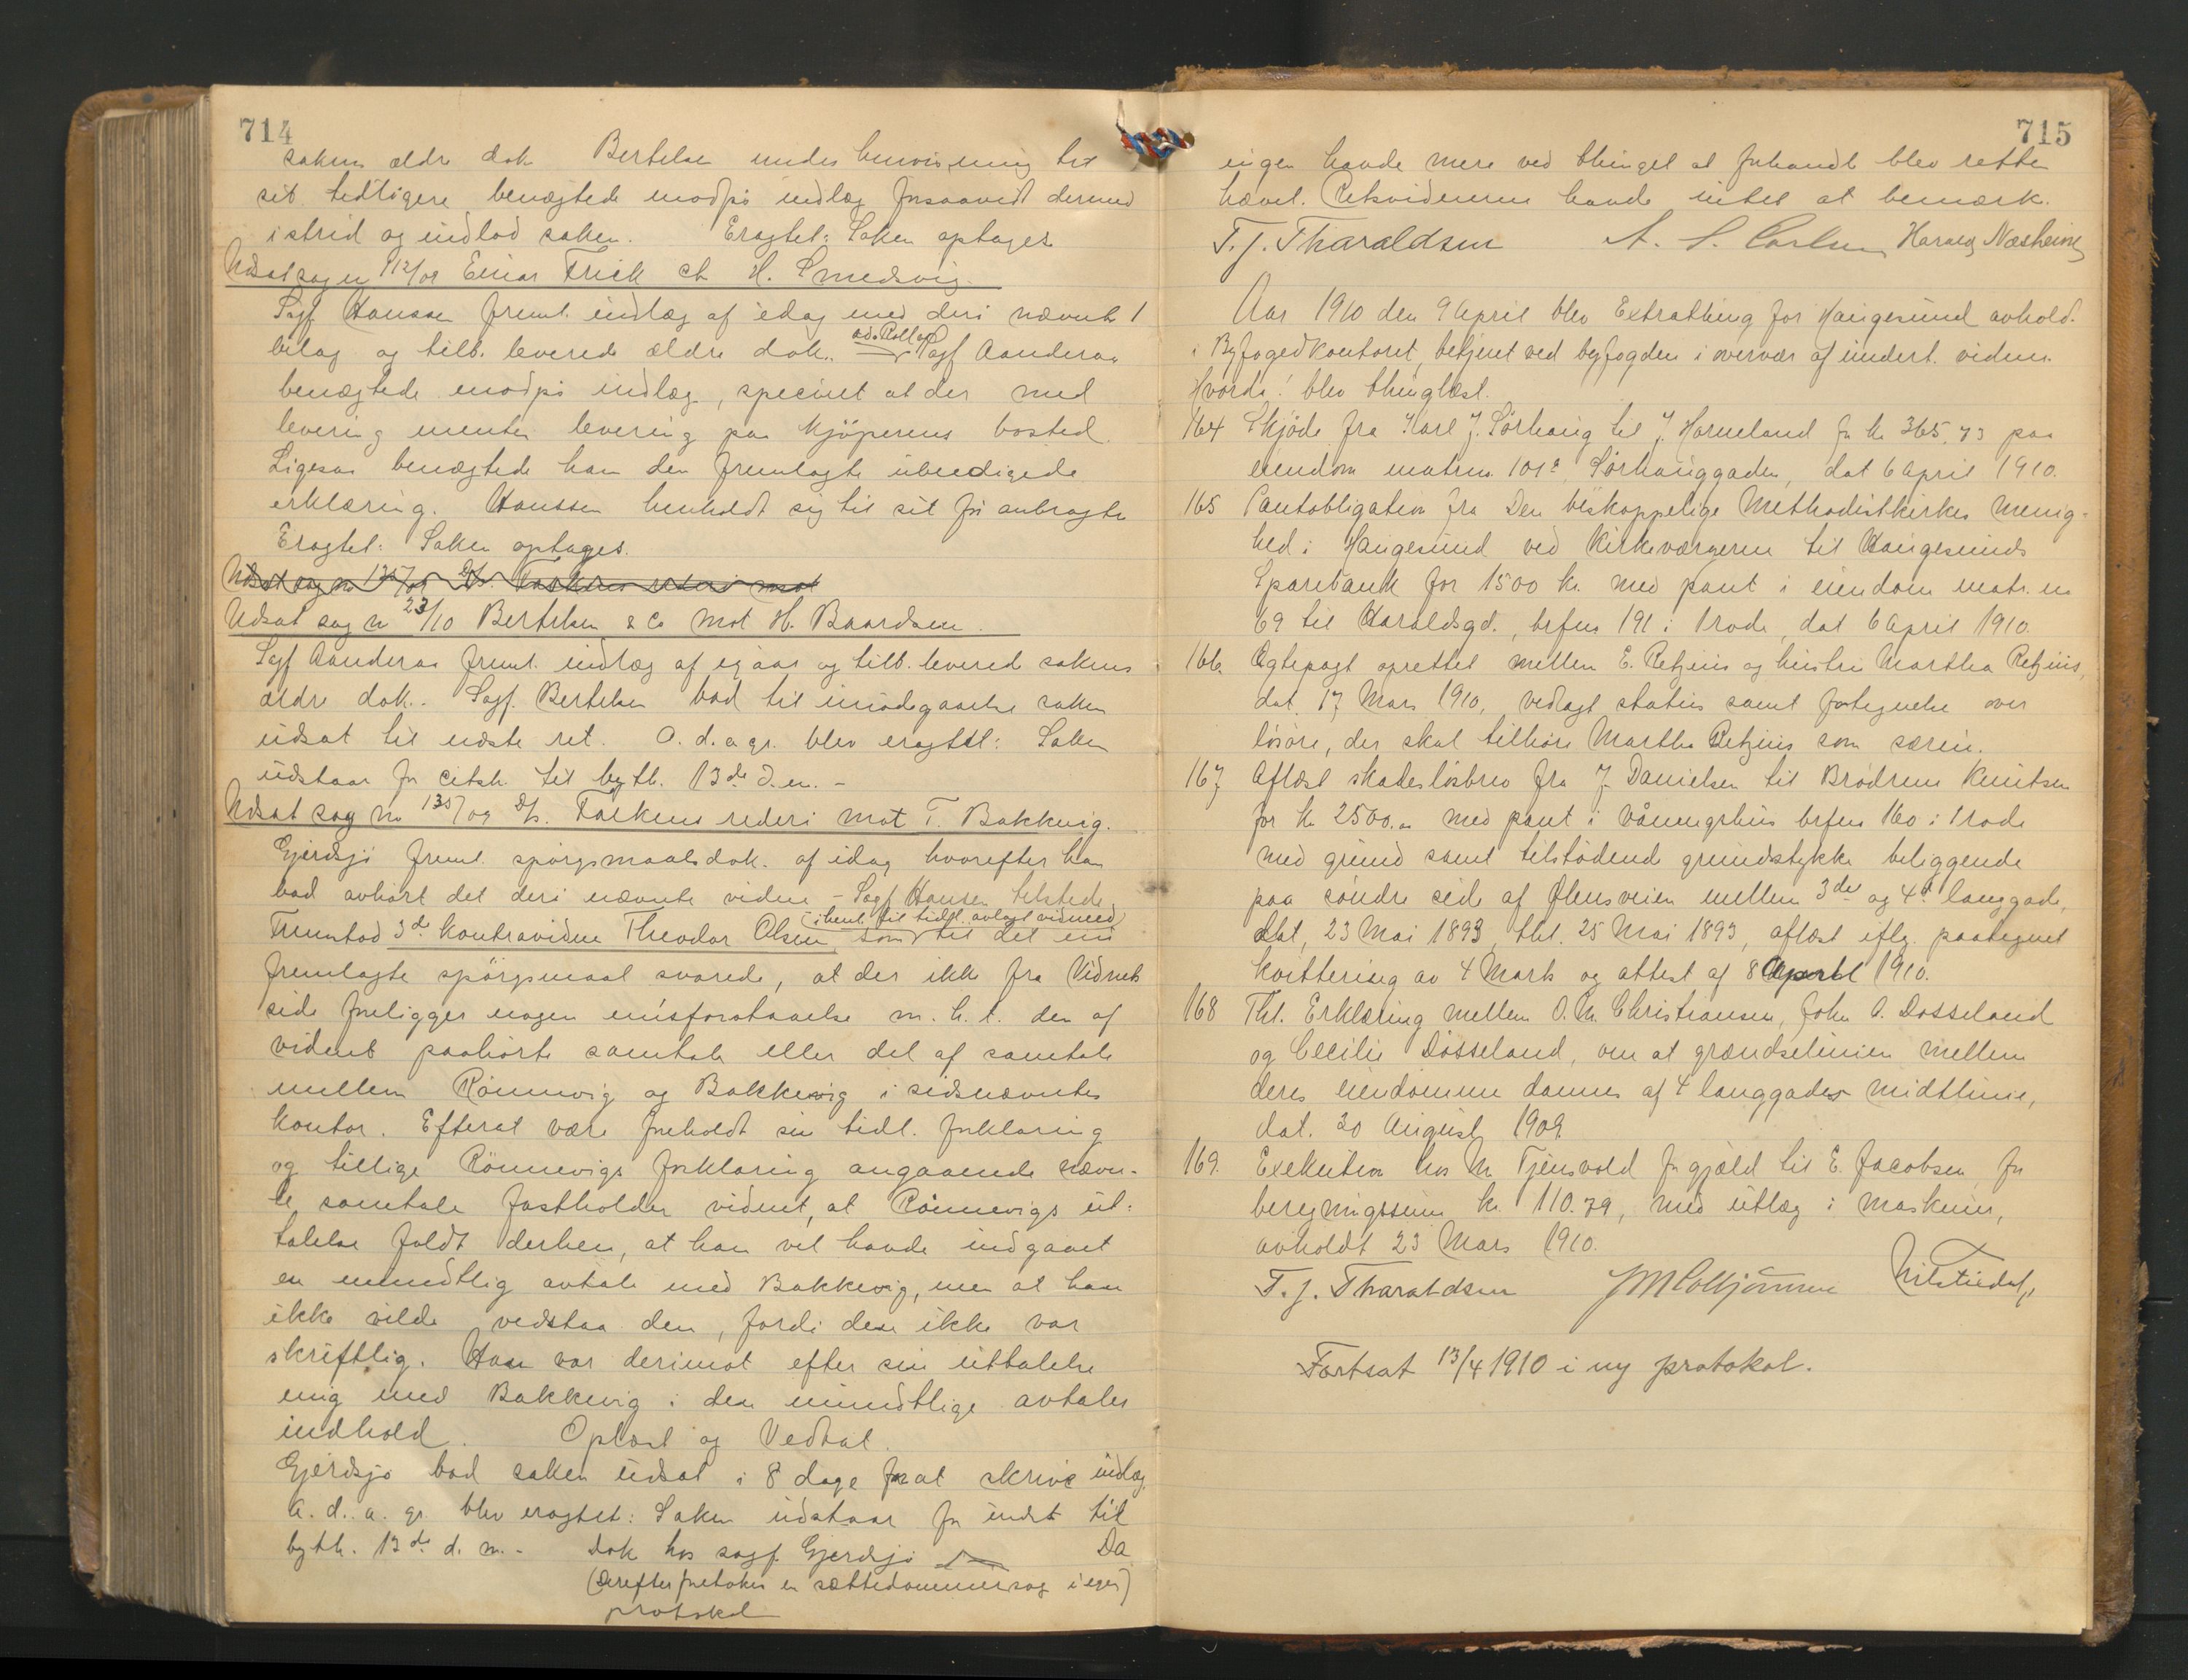 714
sakens ældre dok Bertelsen under henvisning til
sit tidligere benægtede modpi indlæg forsaavidt dermed
i strid og indlod saken. Eragtet: Saken optages
Udsat sag no 112/09 Einar Frick ct H. Smedsvig.
Sagf Hanssen freml. indlæg af idag med deri nævnte 1
bilag og tilb. leverede ældre dok. Sagf Aanderaa
benægtede modpi indlæg, specielt at der med
levering mentes levering paa kjöperens bosted.
Ligesaa benægtede han den fremlagte ubeedigede
erklæring. Hanssen henholdt sig til sit för anbragte
Eragtet: Saken optages.
Udsat sag no 135/09 D/s. Falkens rederi mot
Udsat sag no 23/10 Bertelsen & Co mot H. Baardsen.
Sagf Aanderaa freml. indlæg af igaar og tilb. levered sakens
ældre dok. Sagf. Bertelsen bad til imödegaaelse saken
udsat til næste ret. A. d. a gr. blev eragtet: Saken
udstaar for citsk. til byth. 13de d.m. -
Udsat sag no 135/09 D/s. Falkens rederi mot T. Bakkevig.
Gjerdsjö freml. spörgsmaalsdok. af idag hvorefter han
bad avhört det deri nævnte vidne - Sagf Hansen tilstede
(i henh. til tidl. avlagt vidneed)
Fremstod 3de kontravidne Theodor Olsen, som til det nu
fremlagte spörgsmaal svarede, at der ikke fra Vidnets
side foreligger nogen misforstaaelse m. h. t. den af
vidnet paahörte samtale eller del af samtale
mellem Rönnevig og Bakkevig i sidsnævntes
kontor. Efterat være foreholdt sin tidl. forklaring
og tillige Rönnevigs forklaring angaaende nævn-
te samtale fastholder vidnet, at Rönnevigs ut-
talelse faldt derhen, at han vel havde indgaaet
en mundtlig avtale med Bakkevig, men at han
ikke vilde vedstaa den, fordi den ikke var
skriftlig. Han var derimot efter sin uttalelse
enig med Bakkevig i den mundtlige avtales
indhold. Oplæst og Vedtat.
Gjerdsjö bad saken udsat i 8 dage for at skrive indlæg
A. d. a. gr. blev eragtet: Saken udstaar for indst til
byth. 13de d. m. - Dok hos sagf. Gjerdsjö Da
(Derefter foretokes en sættedommersag i egen)
protokol
715
ingen havde mere ved thinget at forhandle blev retten
hævet. Retsvidnerne havde intet at bemærk.
T. J. Tharaldsen A. S. Carlsen Harald Næsheim
Aar 1910 den 9 April blev Extrathing for Haugesund avhold.
i Byfogedkontoret, betjent ved byfogden i overvær af undert. vidner.
Hvorda! blev thinglæst.
164 Skjöde fra Karl J. Sörhaug til J. Horneland for kr 365,73 paa
eiendom matrno. 101a, Sörhauggaden, dat 6 April 1910.
165 Pantobligation fra Den biskoppelige Methodistkirkes menig-
hed i Haugesund ved kirkeværgerne til Haugesunds
Sparebank for 1500 kr. med pant i eiendom matr. no
69 til Haraldsgd., brfno 191 i 1 rode, dat 6 April 1910.
166. Ægtepagt oprettet mellem E. Retzius og hustru Martha Retzius,
dat 17 Mars 1910, vedlagt status samt fortegnelse over
lösöre, der skal tilhöre Martha Retzius som særeie.
167 Aflæst skadeslösbrev fra J. Danielsen til Brödrene Knutsen
for kr 2500.00 med pant i våningshus brfno 160 i 1 rode
med grund samt tilstödende grundstykke beliggende
paa söndre side af Ølensveien mellem 3die og 4de langgade,
dat, 23 Mai 1893, thl. 25 Mai 1893, aflæst iflg. paategnet
kvittering av 4 Marts og attest af 8 April 1910.
168 Thl. Erklæring mellem O. M. Christiansen, John A. Dosseland
og Cecilie Dosseland, om at grændselinien mellem
deres eiendomme dannes af 4 langgades midtlinie,
dat. 20 August 1909.
169. Exekution hos M. Tjensvold for gjæld til E. Jacobsen for
beregningssum kr. 110.79, med utlæg i maskiner,
avholdt 23 Mars 1910.
T. J. Tharaldsen
Fortsat 13/4 1910 i ny protokol.